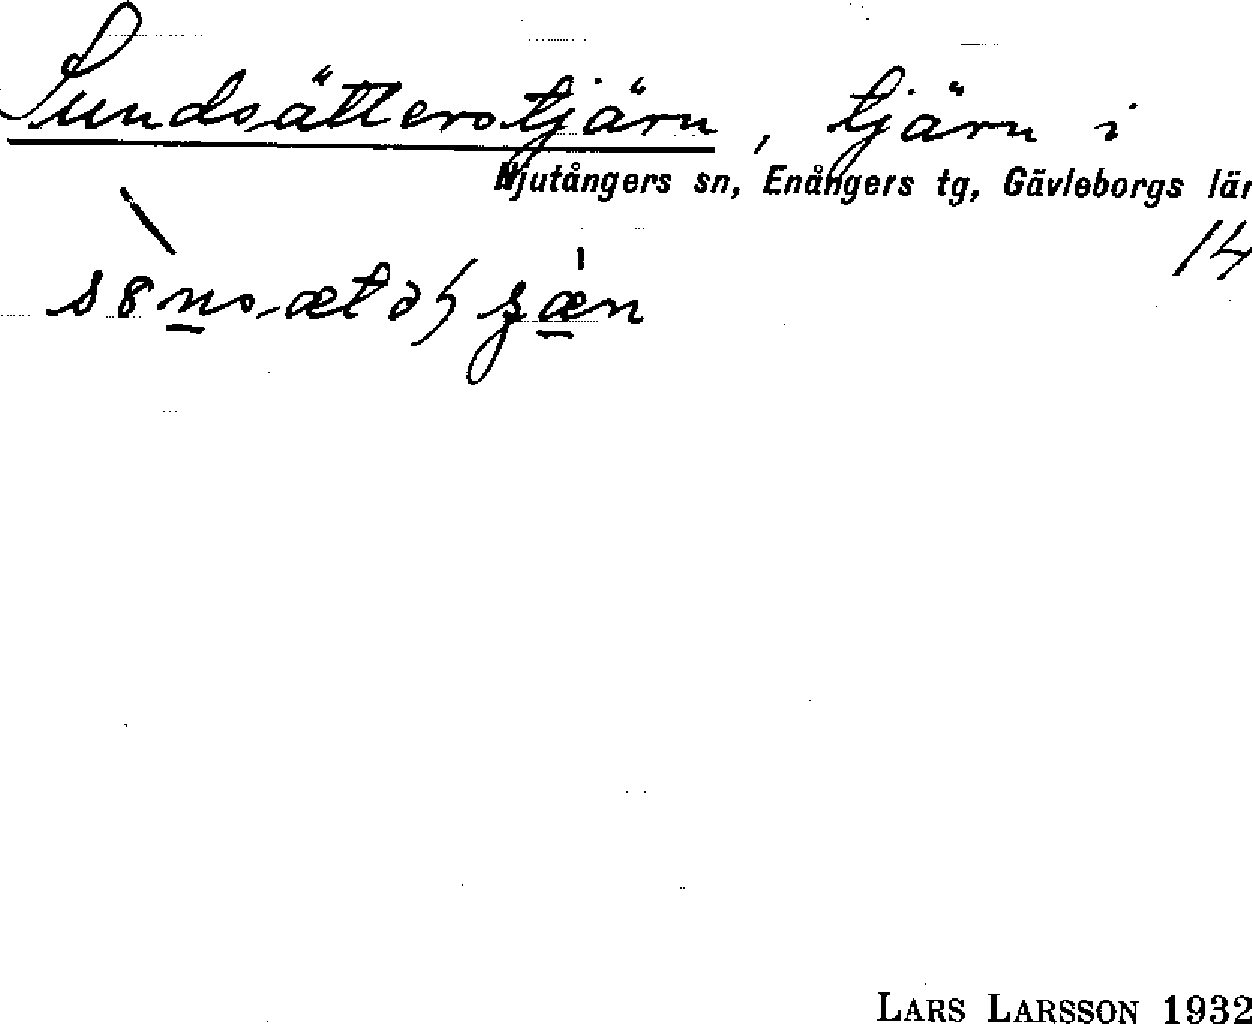 Sundsätterstjärn, tjärn i
Njutångers sn, Enångers tg, Gävleborgs län
14
LARS LARSSON 1932